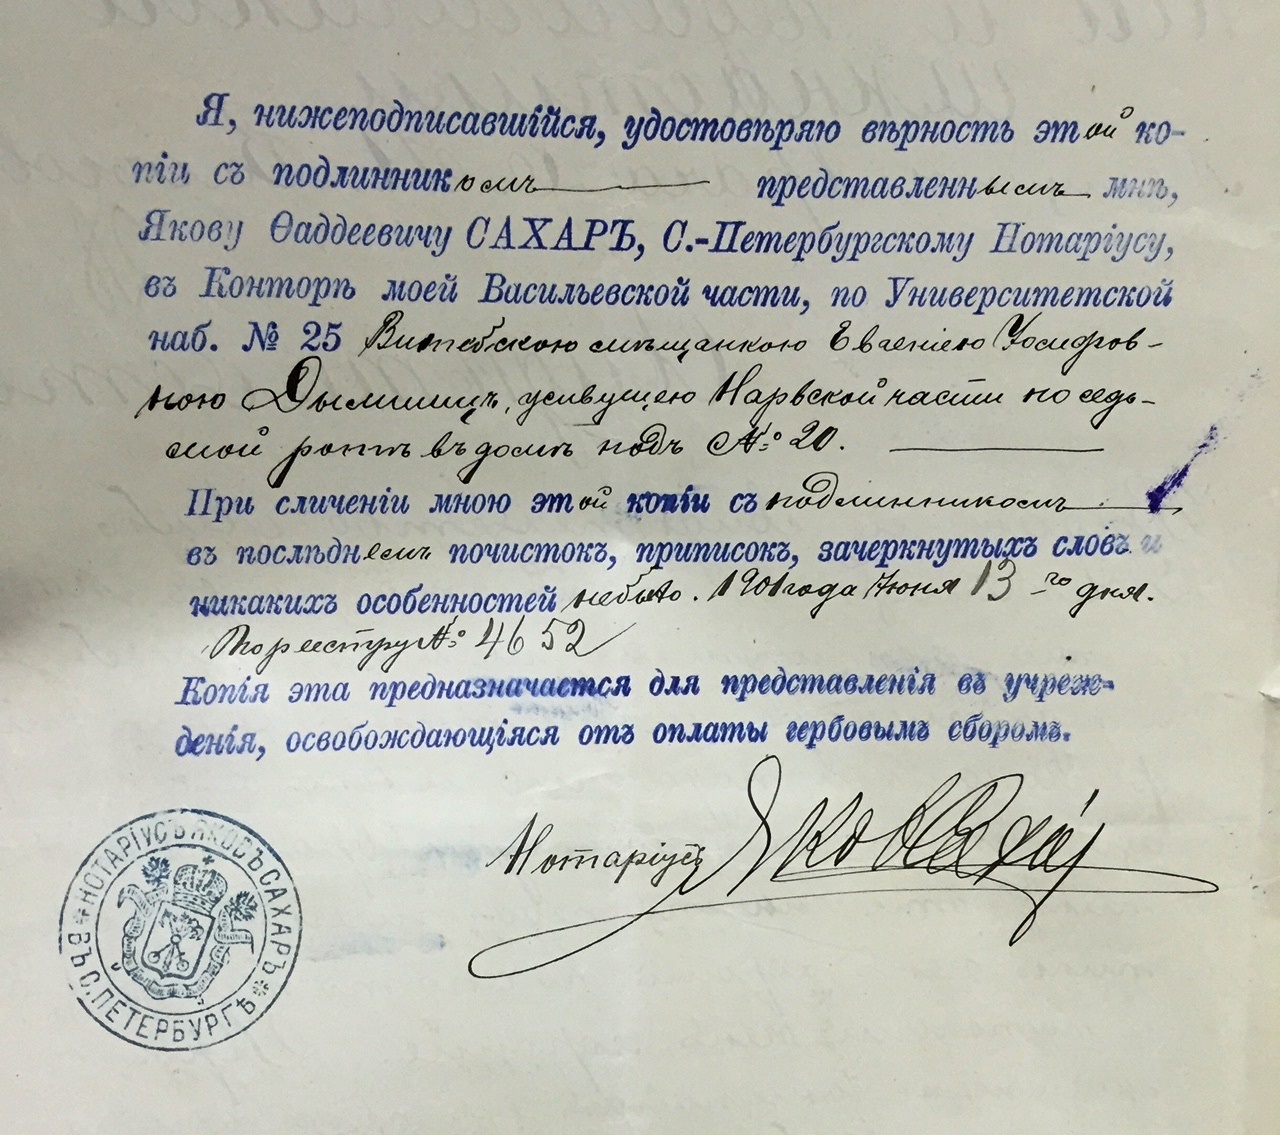 Я, нижеподписавшійся, удостовѣряю вѣрность этой ко-
піи съ подлинникомъ представленнымъ мнѣ,
Якову Ѳаддеевичу САХАРЪ, С.-Петербургскому Нотаріусу,
въ Конторѣ моей Васильевской части, по Университетской
наб. № 25 Витебскою мѣщанкою Евгеніею Іосифов-
ною Дымшицъ, живущею Нарвской части по седь-
мой ротѣ въ домѣ подъ № 20.
При сличеніи мною этой копіи съ подлинникомъ
въ послѣднемъ почистокъ, приписокъ, зачеркнутыхъ словъ и
никакихъ особенностей небыло. 1901 года Іюня 13 го дня.
По реестру № 4652
Копія эта предназначается для представленія въ учреж-
денія, освобождающіяся отъ оплаты гербовымъ сборомъ.
Нотаріусъ Яковъ Сахаръ
НОТАРІУСЪ ЯКОВЪ САХАРЪ
ВЪ С.ПЕТЕРБУРГѢ